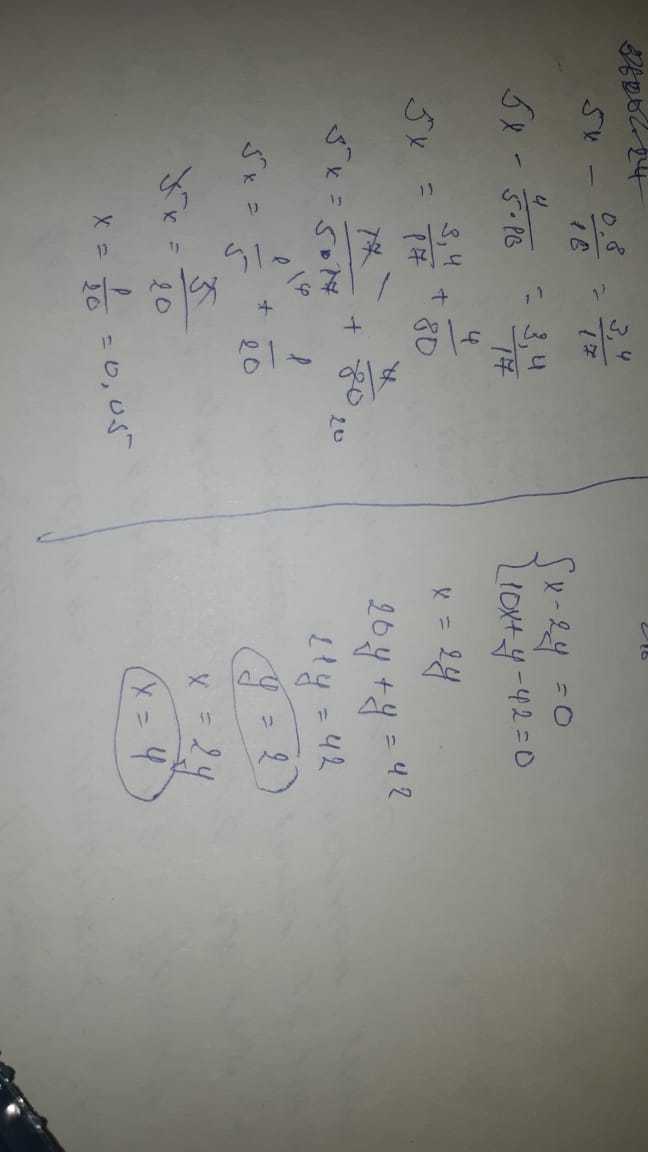 5x - 0,8/16 = 3,4/17
5x - 4/5·16 = 3,4/17
5x = 3,4/17 + 4/80
5x = 17/5·17 + 4/80 20
5x = 1/5 1,4 + 1/20
5x = 5/20
x = 1/20 = 0,05
{x - 2y = 0
{10x + y - 42 = 0
x = 2y
20y + y = 42
21y = 42
y = 2
x = 2y
x = 4